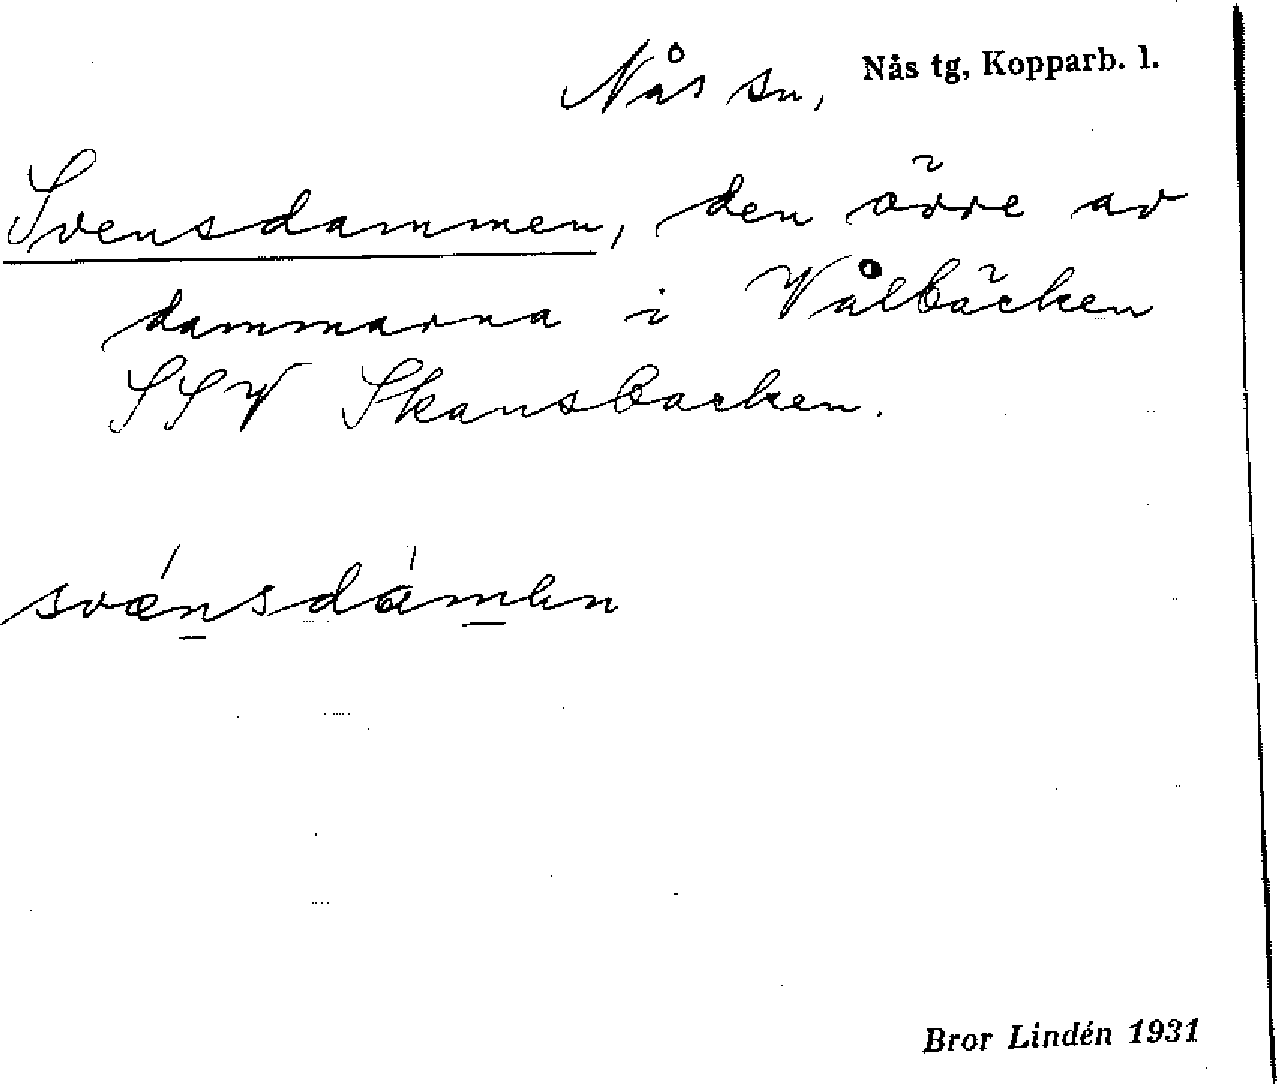 Nås sn, Nås tg, Kopparb. l.
Svensdammen, den övre av
dammarna i Vålbäcken
SSV Skansbacken.
svǽnsdámən
Bror Lindén 1931